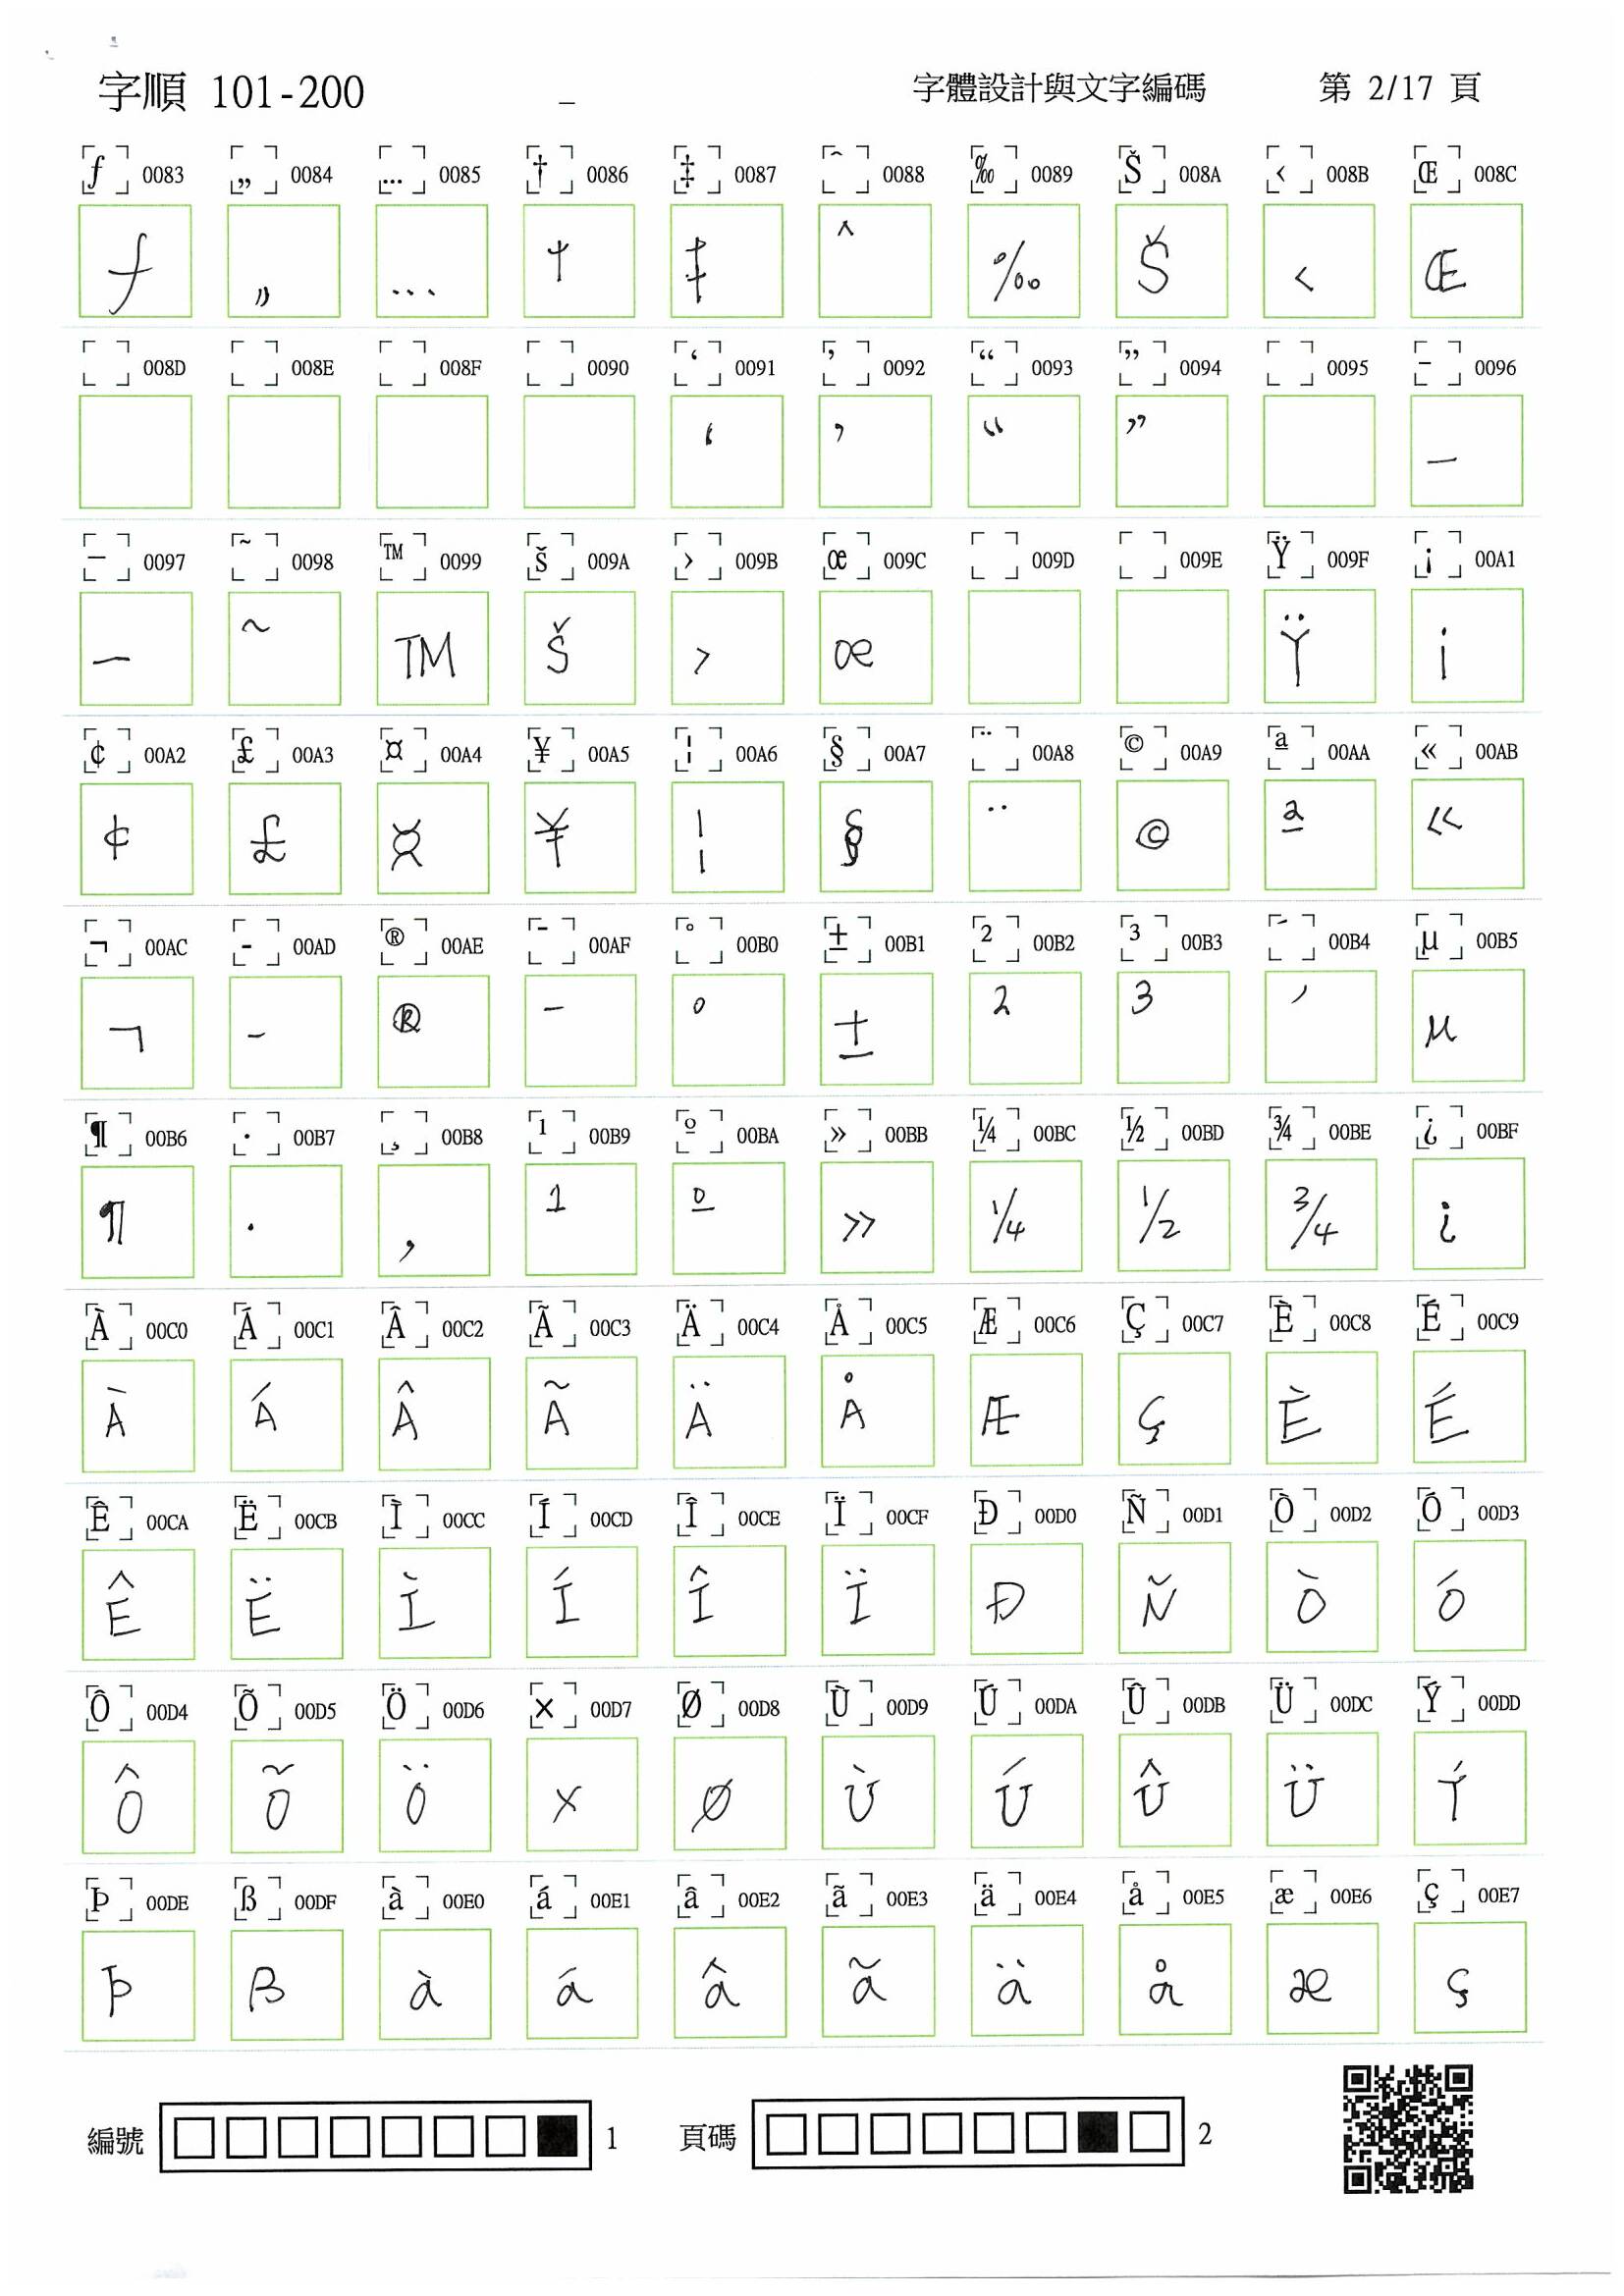 字順 101-200 字體設計與文字編碼 第 2/17 頁
ƒ 0083 „ 0084 … 0085 † 0086 ‡ 0087 ˆ 0088 ‰ 0089 Š 008A ‹ 008B Œ 008C
ƒ „ … † ‡ ^ ‰ Š ‹ Œ
008D 008E 008F 0090 ‘ 0091 ’ 0092 “ 0093 ” 0094 0095 – 0096
‘ ’ “ ” –
— 0097 ~ 0098 ™ 0099 š 009A › 009B œ 009C 009D 009E Ÿ 009F ¡ 00A1
— ~ TM š › œ Ÿ ¡
¢ 00A2 £ 00A3 ¤ 00A4 ¥ 00A5 ¦ 00A6 § 00A7 ¨ 00A8 © 00A9 ª 00AA « 00AB
¢ £ ¤ ¥ ¦ § ¨ © ª «
¬ 00AC - 00AD ® 00AE ¯ 00AF ° 00B0 ± 00B1 ² 00B2 ³ 00B3 ´ 00B4 µ 00B5
¬ - ® ¯ ° ± ² ³ ´ µ
¶ 00B6 · 00B7 ¸ 00B8 ¹ 00B9 º 00BA » 00BB ¼ 00BC ½ 00BD ¾ 00BE ¿ 00BF
¶ · , ¹ º » ¼ ½ ¾ ¿
À 00C0 Á 00C1 Â 00C2 Ã 00C3 Ä 00C4 Å 00C5 Æ 00C6 Ç 00C7 È 00C8 É 00C9
À Á Â Ã Ä Å Æ Ç È É
Ê 00CA Ë 00CB Ì 00CC Í 00CD Î 00CE Ï 00CF Ð 00D0 Ñ 00D1 Ò 00D2 Ó 00D3
Ê Ë Ì Í Î Ï Ð Ñ Ò Ó
Ô 00D4 Õ 00D5 Ö 00D6 × 00D7 Ø 00D8 Ù 00D9 Ú 00DA Û 00DB Ü 00DC Ý 00DD
Ô Õ Ö × Ø Ù Ú Û Ü Ý
Þ 00DE ß 00DF à 00E0 á 00E1 â 00E2 ã 00E3 ä 00E4 å 00E5 æ 00E6 ç 00E7
Þ ß à á â ã ä å æ ç
編號 1 頁碼 2